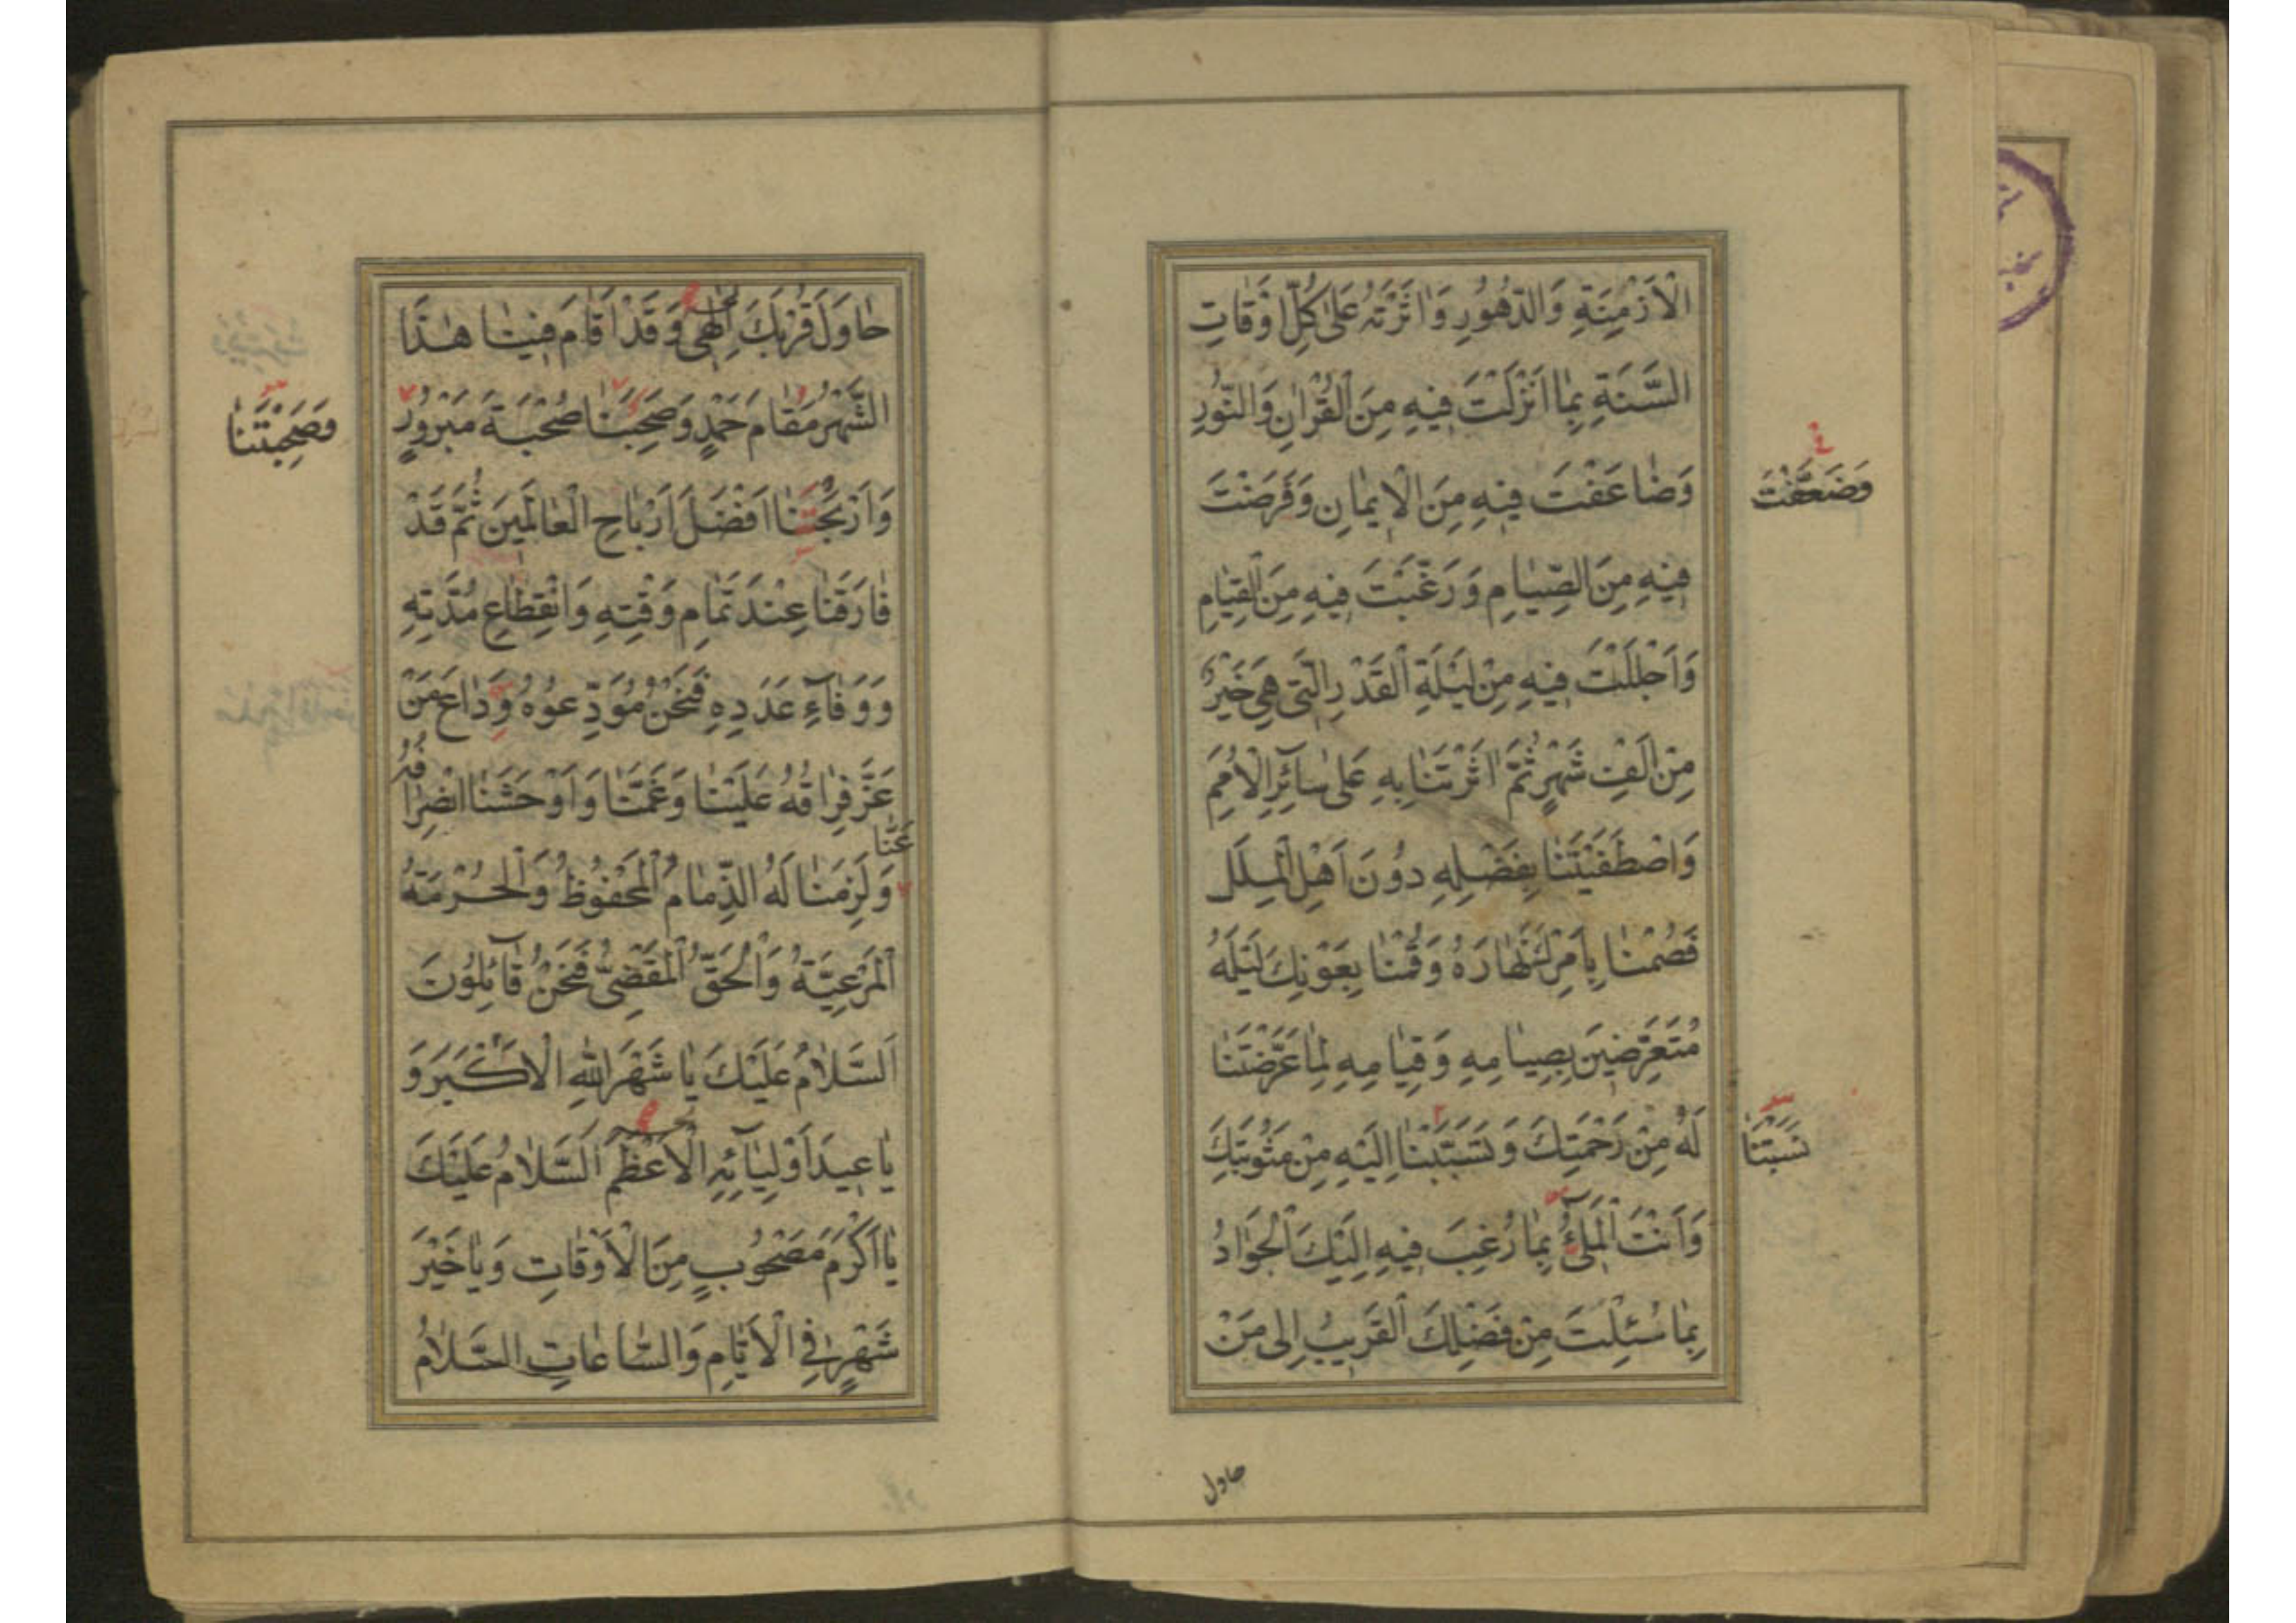 الْاَزْمِنَةِ وَالدُّهُورِ وَاٰثَرْتَهُ عَلٰى كُلِّ اَوْقَاتِ
السَّنَةِ بِمٰا اَنْزَلْتَ فِيهِ مِنَ الْقُرْاٰنِ وَالنُّورِ
وَضٰاعَفْتَ فِيهِ مِنَ الْاِيمٰانِ وَفَرَضْتَ
وَضَعَّفْتَ
فِيهِ مِنَ الصِّيٰامِ وَرَغَّبْتَ فِيهِ مِنَ الْقِيٰامِ
وَاَجْلَلْتَ فِيهِ مِنْ لَيْلَةِ الْقَدْرِ الَّتِي هِيَ خَيْرٌ
مِنْ اَلْفِ شَهْرٍ ثُمَّ اٰثَرْتَنٰا بِهِ عَلٰى سٰآئِرِ الْاُمَمِ
وَاصْطَفَيْتَنٰا بِفَضْلِهِ دُونَ اَهْلِ الْمِلَلِ
فَصُمْنٰا بِاَمْرِكَ نَهٰارَهُ وَقُمْنٰا بِعَوْنِكَ لَيْلَهُ
مُتَعَرِّضِينَ بِصِيٰامِهِ وَقِيٰامِهِ لِمٰا عَرَّضْتَنٰا
لَهُ مِنْ رَحْمَتِكَ وَتَسَبَّبْنٰا اِلَيْهِ مِنْ مَثُوبَتِكَ
نَسَبْتَنٰا
وَاَنْتَ الْمَلِىُٓ بِمٰا رُغِبَ فِيهِ اِلَيْكَ الْجَوٰادُ
بِمٰا سُئِلْتَ مِنْ فَضْلِكَ الْقَرِيبُ اِلٰى مَنْ
حاول
حٰاوَلَ قُرْبَكَ اِلٰهِى وَقَدْ اَقٰامَ فِينٰا هٰذَا
الشَّهْرُ مَقٰامَ حَمْدٍ وَصَحِبَنٰا صُحْبَةَ مَبْرُورٍ
وَصَحِبْتَنٰا
وَاَرْبَحَنٰا اَفْضَلَ اَرْبٰاحِ الْعٰالَمِينَ ثُمَّ قَدْ
فٰارَقَنٰا عِنْدَ تَمٰامِ وَقْتِهِ وَانْقِطٰاعِ مُدَّتِهِ
وَوَفٰآءِ عَدَدِهِ فَنَحْنُ مُوَدِّعُوهُ وِدٰاعَ مَنْ
عَزَّ فِرٰاقُهُ عَلَيْنٰا وَغَمَّنٰا وَاَوْحَشَنٰا انْصِرٰافُهُ
عَنّٰا
وَلَزِمَنٰا لَهُ الذِّمٰامُ الْمَحْفُوظُ وَالْحُرْمَةُ
الْمَرْعِيَّةُ وَالْحَقُّ الْمَقْضِىُّ فَنَحْنُ قٰآئِلُونَ
اَلسَّلٰامُ عَلَيْكَ يٰا شَهْرَ اللّٰهِ الْاَكْبَرَ وَ
يٰا عِيدَ اَوْلِيٰآئِهِ الْاَعْظَمَ اَلسَّلٰامُ عَلَيْكَ
يٰا اَكْرَمَ مَصْحُوبٍ مِنَ الْاَوْقٰاتِ وَيٰا خَيْرَ
شَهْرٍ فِى الْاَيّٰامِ وَالسّٰاعٰاتِ السَّلٰامُ